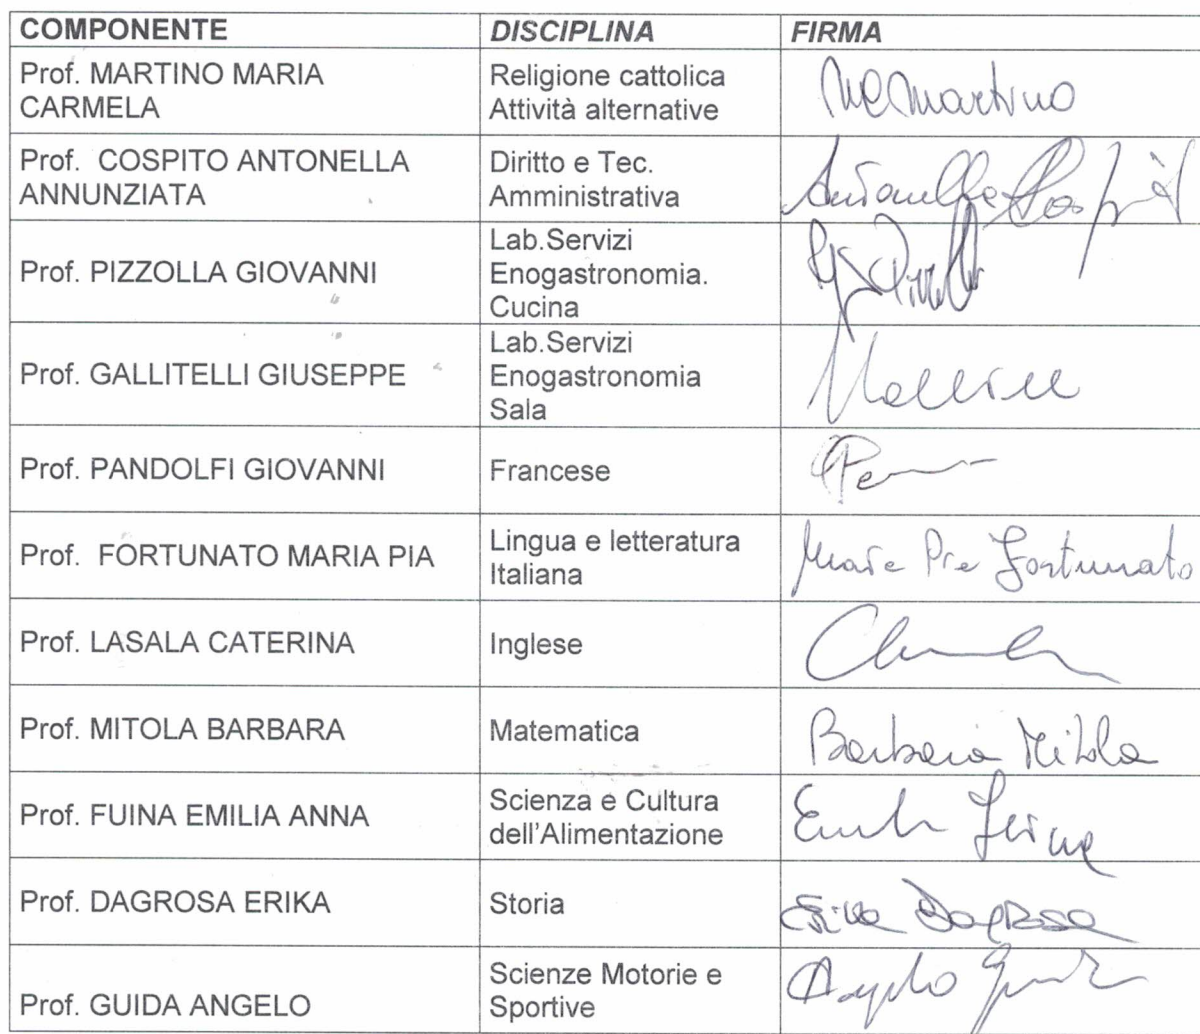 COMPONENTE DISCIPLINA FIRMA
Prof. MARTINO MARIA
CARMELA
Religione cattolica
Attività alternative
Martino
Prof. COSPITO ANTONELLA
ANNUNZIATA
Diritto e Tec.
Amministrativa
Antonella Cospito
Prof. PIZZOLLA GIOVANNI
Lab.Servizi
Enogastronomia.
Cucina
Prof. GALLITELLI GIUSEPPE
Lab.Servizi
Enogastronomia
Sala
Prof. PANDOLFI GIOVANNI
Francese
Prof. FORTUNATO MARIA PIA
Lingua e letteratura
Italiana
Maria Pia Fortunato
Prof. LASALA CATERINA
Inglese
Prof. MITOLA BARBARA
Matematica
Barbara Mitola
Prof. FUINA EMILIA ANNA
Scienza e Cultura
dell'Alimentazione
Prof. DAGROSA ERIKA
Storia
Erika Dagrosa
Prof. GUIDA ANGELO
Scienze Motorie e
Sportive
Angelo